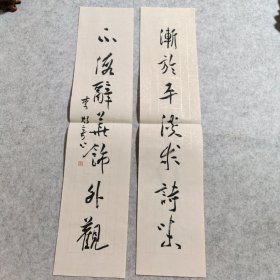 漸於平淡求詩味
不落辭華飾外觀